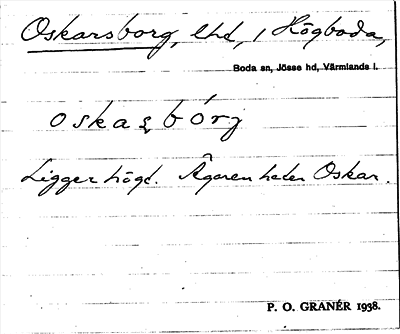 Oskarsborg, lhd, i Högboda,
Boda sn, Jösse hd, Värmlands l.
oskaʂbórj
Ligger högt. Ägaren heter Oskar.
P. O. GRANÉR 1938.